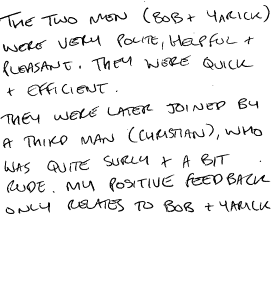 THE TWO MEN (BOB + YARICK)
WERE VERY POLITE, HELPFUL +
PLEASANT. THEY WERE QUICK
+ EFFICIENT.
THEY WERE LATER JOINED BY
A THIRD MAN (CHRISTIAN), WHO
WAS QUITE SURLY + A BIT
RUDE. MY POSITIVE FEEDBACK
ONLY RELATES TO BOB + YARICK